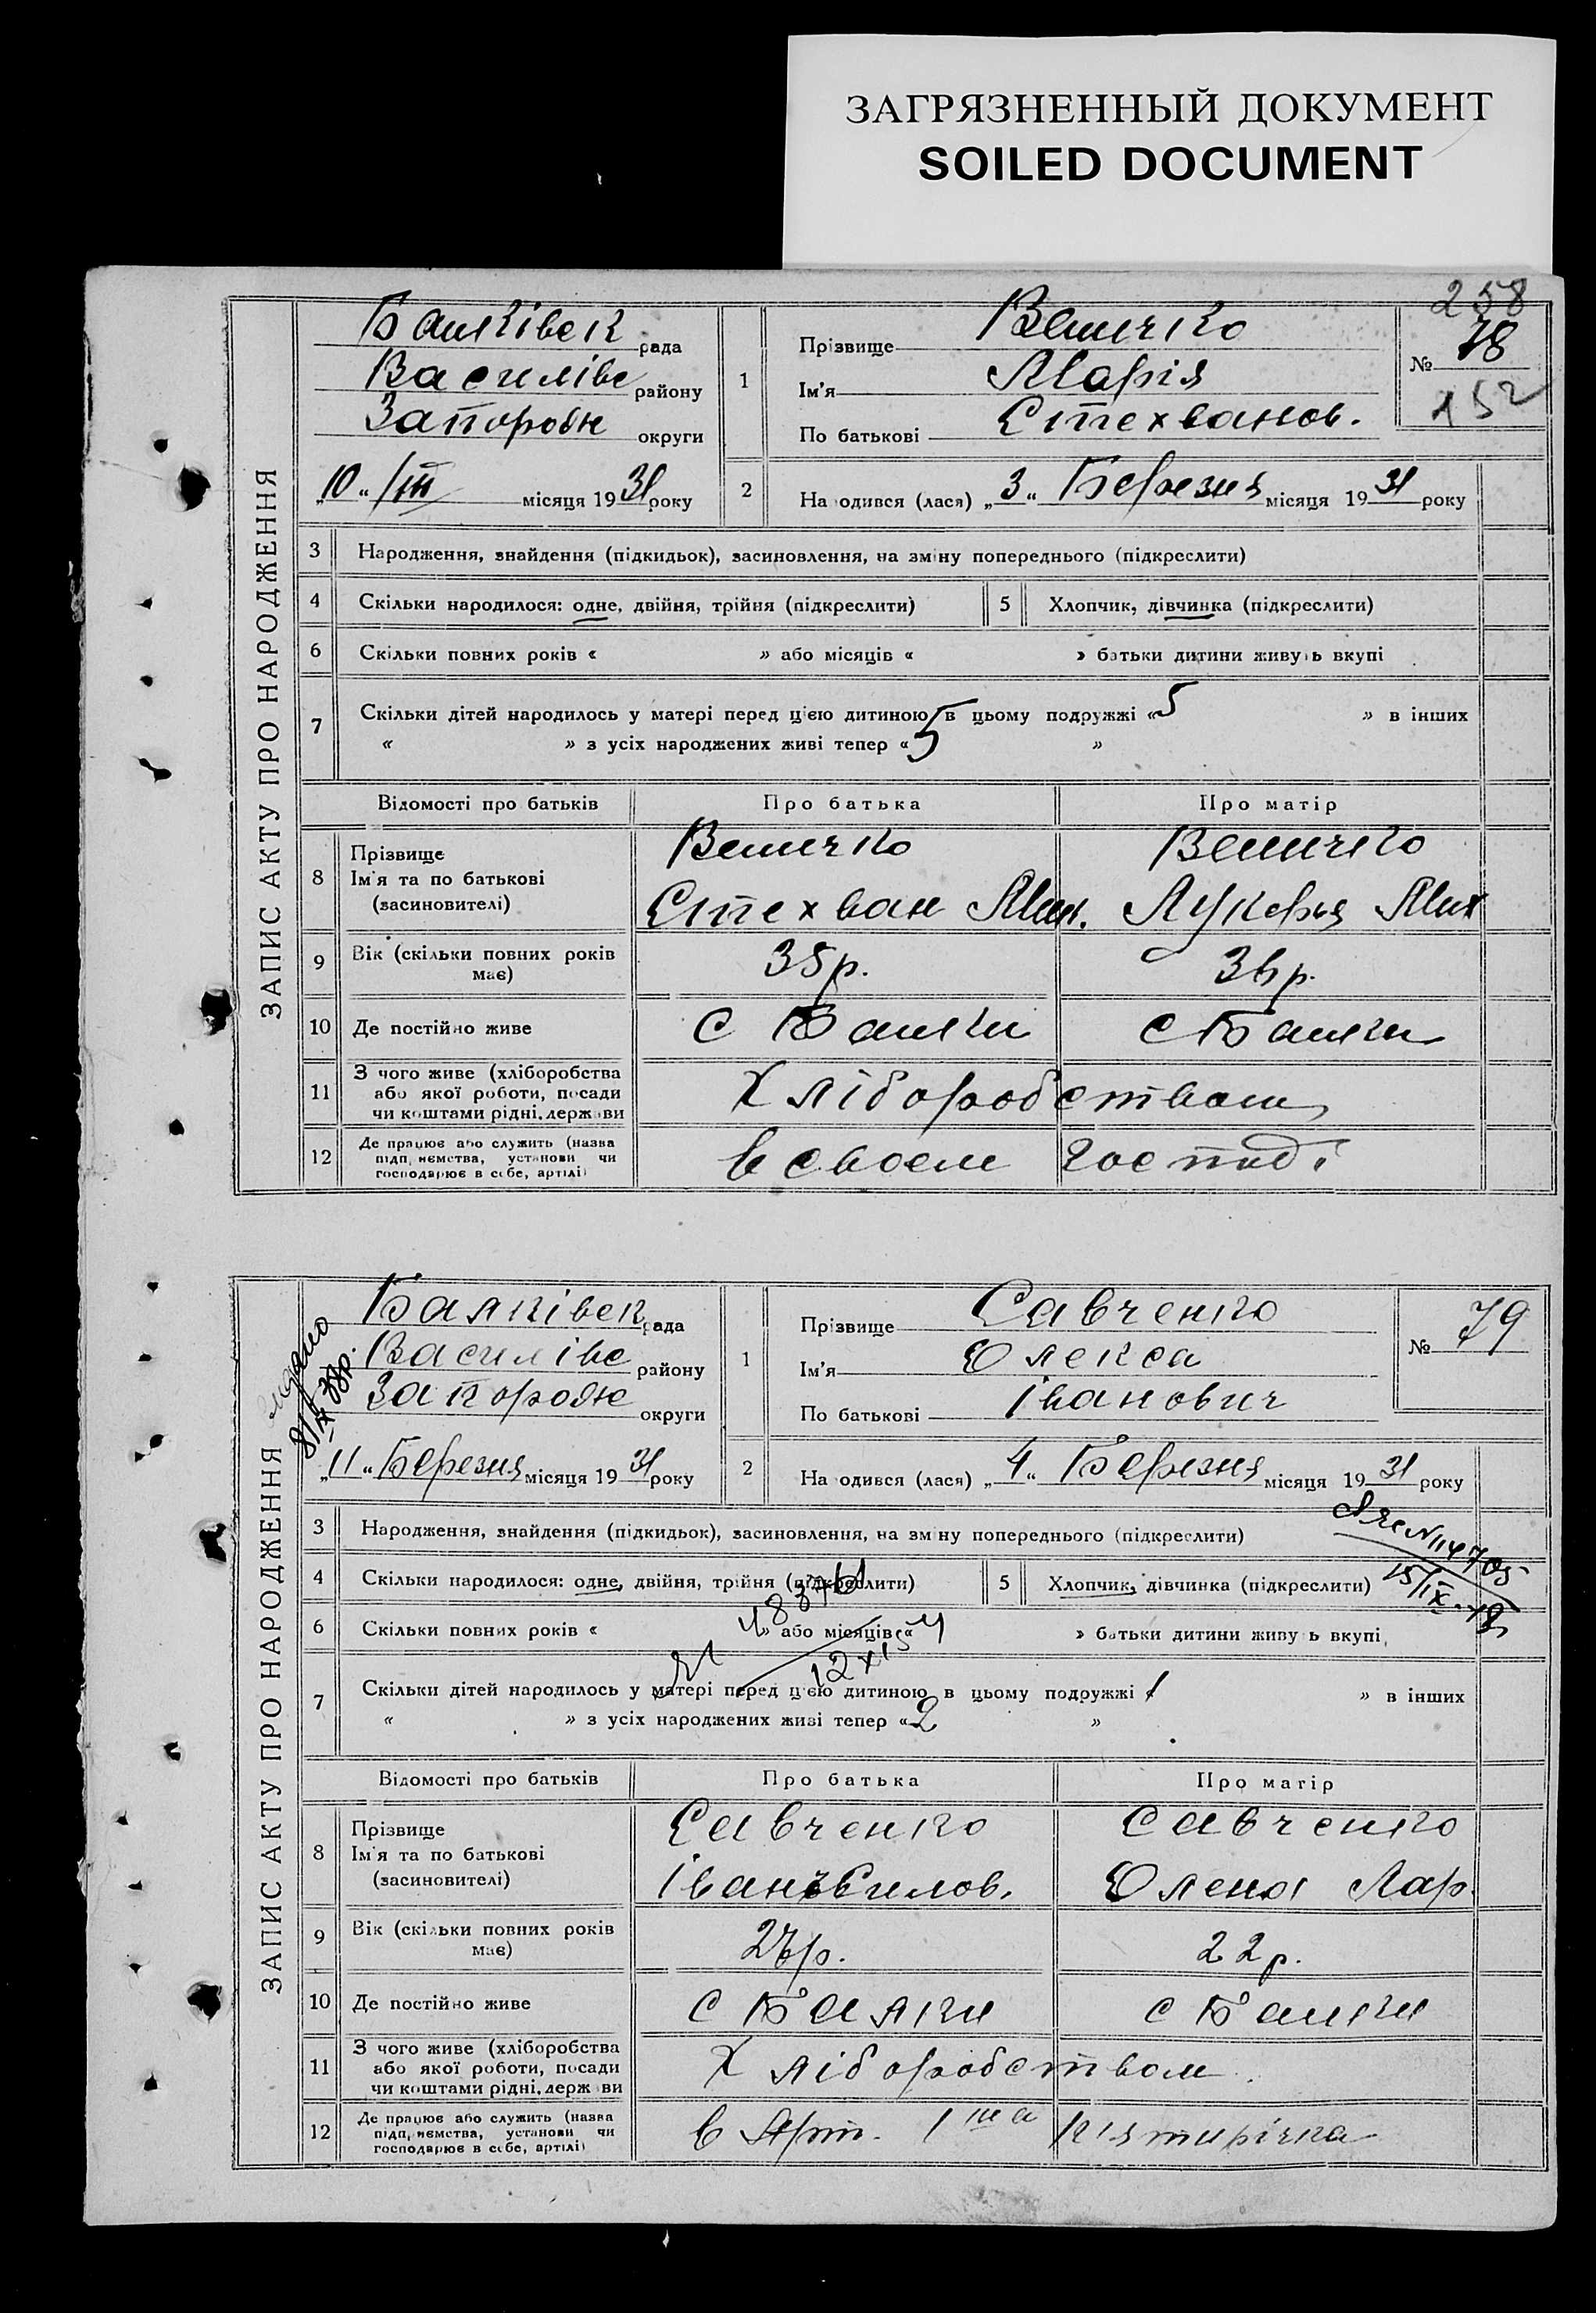 ЗАГРЯЗНЕННЫЙ ДОКУМЕНТ
SOILED DOCUMENT
258
ЗАПИС АКТУ ПРО НАРОДЖЕННЯ
Балківськ рада
Василівс району
Запорож округи
„10“ /III місяця 1931 року
1 Прізвище Величко
Ім'я Марія
По батькові Стехванов.
№ 78
152
2 На одився (лася) „3“ Березня місяця 1931 року
3 Народження, знайдення (підкидьок), засиновлення, на зміну попереднього (підкреслити)
4 Скільки народилося: одне, двійня, трійня (підкреслити) 5 Хлопчик, дівчинка (підкреслити)
6 Скільки повних років « » або місяців « » батьки дитини живуть вкупі
7 Скільки дітей народилось у матері перед цією дитиною в цьому подружжі «5 » в інших
« » з усіх народжених живі тепер «5 »
Відомості про батьків Про батька Про матір
8 Прізвище Ім'я та по батькові (засиновителі)
Величко Величко
Стехван Мих. Лукерья Мих
9 Вік (скільки повних років має) 35р. 36р.
10 Де постійно живе с Балки с Балки
11 З чого живе (хліборобства або якої роботи, посади чи коштами рідні, держави
Хліборобством
12 Де працює або служить (назва підприємства, установи чи господарює в себе, артілі)
в своем господ.
ЗАПИС АКТУ ПРО НАРОДЖЕННЯ
Балківськ рада
Василівс району
Запорож округи
„11“ Березня місяця 1931 року
1 Прізвище Савченко
Ім'я Олекса
По батькові Іванович
№ 79
2 На одився (лася) „4“ Березня місяця 1931 року
3 Народження, знайдення (підкидьок), засиновлення, на зміну попереднього (підкреслити)
4 Скільки народилося: одне, двійня, трійня (підкреслити) 5 Хлопчик, дівчинка (підкреслити)
6 Скільки повних років « » або місяців « » батьки дитини живуть вкупі
7 Скільки дітей народилось у матері перед цією дитиною в цьому подружжі «1 » в інших
« » з усіх народжених живі тепер «2 »
Відомості про батьків Про батька Про матір
8 Прізвище Ім'я та по батькові (засиновителі)
Савченко Савченко
Іван Олена Лар.
9 Вік (скільки повних років має) 22р.
10 Де постійно живе с Балки с Балки
11 З чого живе (хліборобства або якої роботи, посади чи коштами рідні, держави
Хліборобством
12 Де працює або служить (назва підприємства, установи чи господарює в себе, артілі)
в Арт. 1ша пятирічка